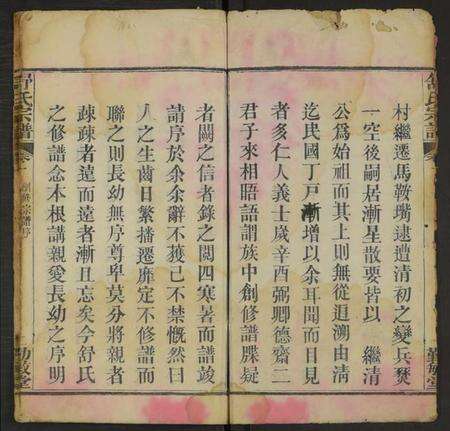 舒氏宗譜
村繼遷馬鞍嘴逮遭清初之變兵燹
一空後嗣居漸星散要皆以 繼清
公爲始祖而其上則無從追溯由清
迄民國丁戶漸增以余耳聞而目見
者多仁人義士歲辛酉弼卿德齋二
君子來相晤語謂族中創修譜牒疑
勤敏堂
者闕之信者錄之閱四寒暑而譜竣
請序於余余辭不獲已不禁慨然曰
人之生齒日繁播遷靡定不修譜而
聯之則長幼無序尊卑莫分將親者
疎疎者遠而遠者漸且忘矣今舒氏
之修譜念本根講親愛長幼之序明
舒氏宗譜